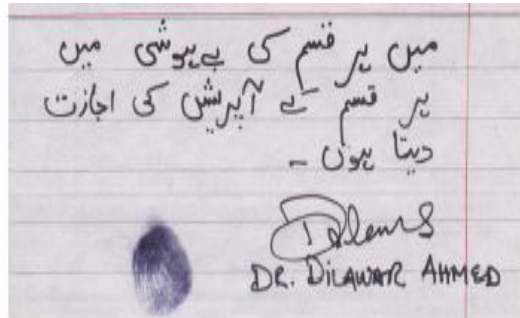 میں ہر قسم کی بے ہوشی میں
ہر قسم کے آپریشن کی اجازت
دیتا ہوں -
DR. DILAWAR AHMED